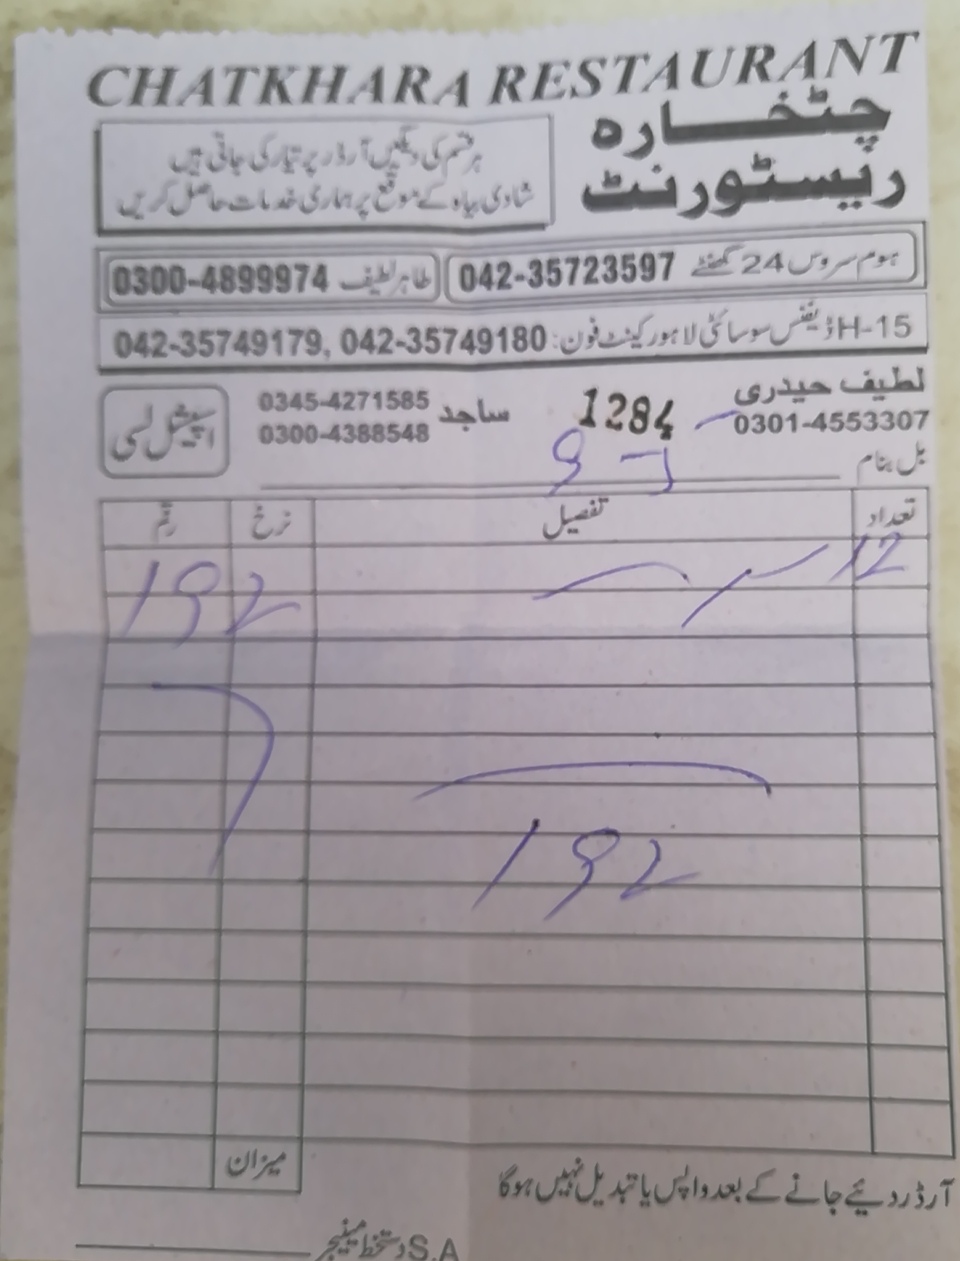 CHATKHARA RESTAURANT
چٹخارہ
ریسٹورنٹ
ہر قسم کی دیگیں آرڈر پر تیار کی جاتی ہیں
شادی بیاہ کے موقع پر ہماری خدمات حاصل کریں
ہوم سروس 24 گھنٹے 042-35723597
طاہر لطیف 0300-4899974
H-15 ڈیفنس سوسائٹی لاہور کینٹ فون: 042-35749179, 042-35749180
لطیف حیدری
0301-4553307
1284
ساجد 0345-4271585
0300-4388548
اسپیشل لسی
بل بنام
تعداد تفصیل نرخ رقم
12 192
192
میزان
آرڈر دیئے جانے کے بعد واپس یا تبدیل نہیں ہوگا
S.A دستخط مینیجر